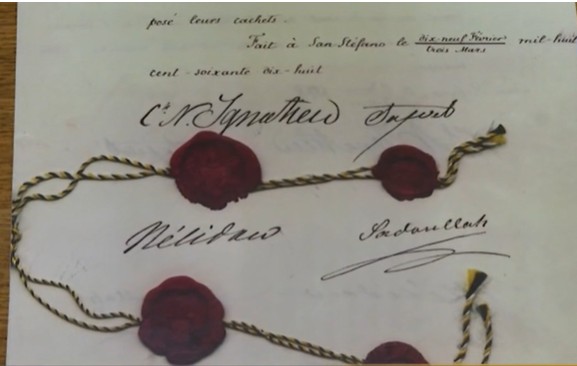 posé leurs cachets.
Fait à San-Stéfano le dix-neuf Février / trois Mars mil-huit
cent-soixante dix-huit
Cte N. Ignatiew Safvet
Nélidow Sadoullah